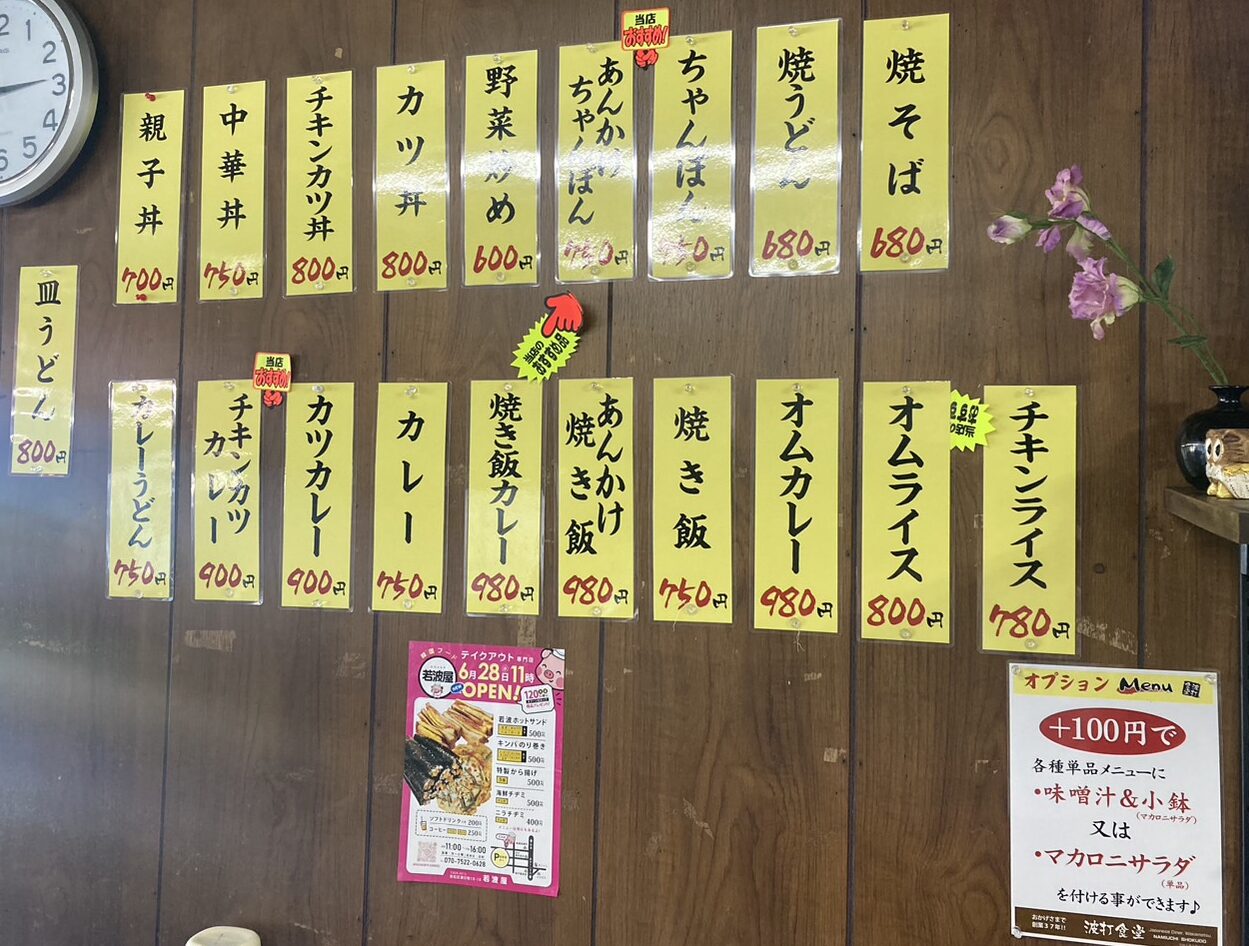 焼そば
680円
焼うどん
680円
当店
おすすめ!
ちゃんぽん
あんかけ
ちゃんぽん
野菜炒め
600円
カツ丼
800円
チキンカツ丼
800円
中華丼
750円
親子丼
700円
皿うどん
800円
チキンライス
780円
オムライス
800円
オムカレー
980円
焼き飯
750円
あんかけ
焼き飯
980円
当店の
おすすめ品
焼き飯カレー
980円
カレー
750円
カツカレー
900円
当店
おすすめ!
チキンカツ
カレー
900円
カレーうどん
750円
1
2
3
4
5
テイクアウト専門店
若波屋
6月28日11時
OPEN!
若波ホットサンド
500円
キンパのり巻き
500円
特製から揚げ
500円
海鮮チヂミ
500円
ニラチヂミ
400円
ソフトドリンク 200円
コーヒー 250円
11:00〜16:00
070-7522-0628
若波屋
オプション Menu
+100円で
各種単品メニューに
・味噌汁&小鉢
(マカロニサラダ)
又は
・マカロニサラダ
(単品)
を付ける事ができます♪
おかげさまで
創業37年!!
波打食堂
NAMIUCHI SHOKUDO